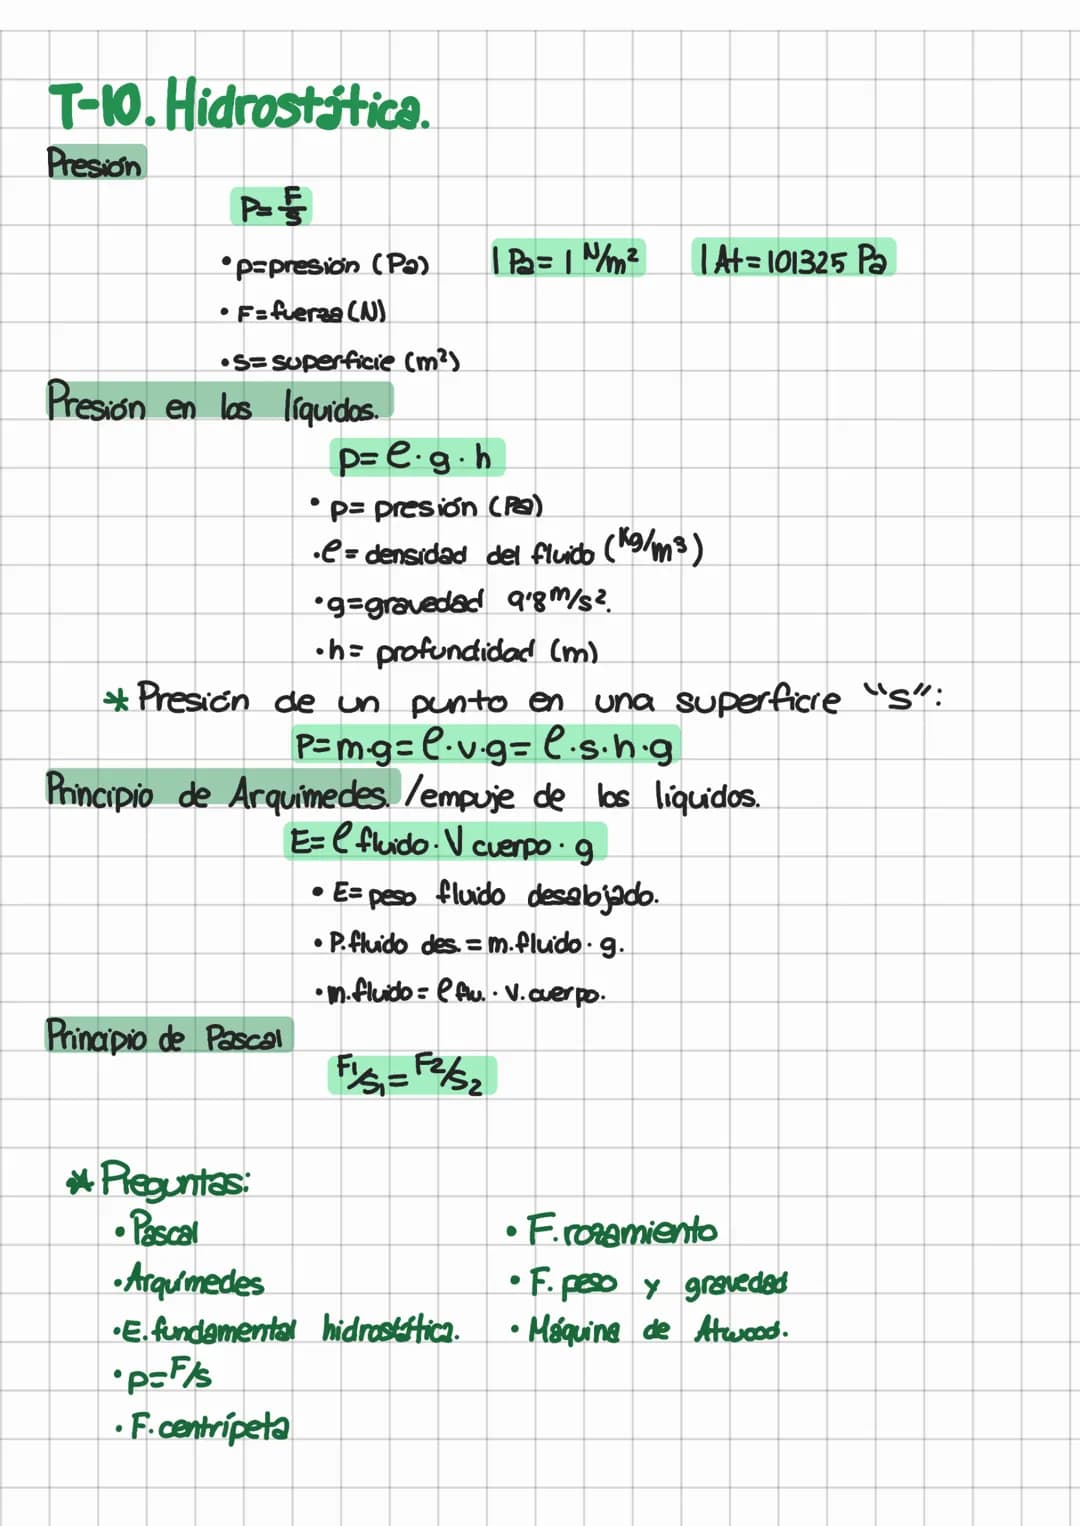 T-10. Hidrostática.
Presión
P= F/S
• p=presión (Pa) 1 Pa= 1 N/m² 1 At=101325 Pa
• F=fuerza (N)
• s= superficie (m²)
Presión en los líquidos.
p= ρ·g·h
• p= presión (Pa)
• ρ= densidad del fluido (Kg/m³)
• g=gravedad 9'8 m/s².
• h= profundidad (m)
* Presión de un punto en una superficie "s":
P=m·g=ρ·v·g=ρ·s·h·g
Principio de Arquímedes. /empuje de los líquidos.
E=ρ fluido·V cuerpo·g
• E= peso fluido desalojado.
• P.fluido des.=m.fluido·g.
• m.fluido=ρ flu.·V.cuerpo.
Principio de Pascal
F1/S1=F2/S2
* Preguntas:
• Pascal
• Arquímedes
• E.fundamental hidrostática.
• p=F/s
• F.centrípeta
• F.rozamiento
• F.peso y gravedad
• Máquina de Atwood.